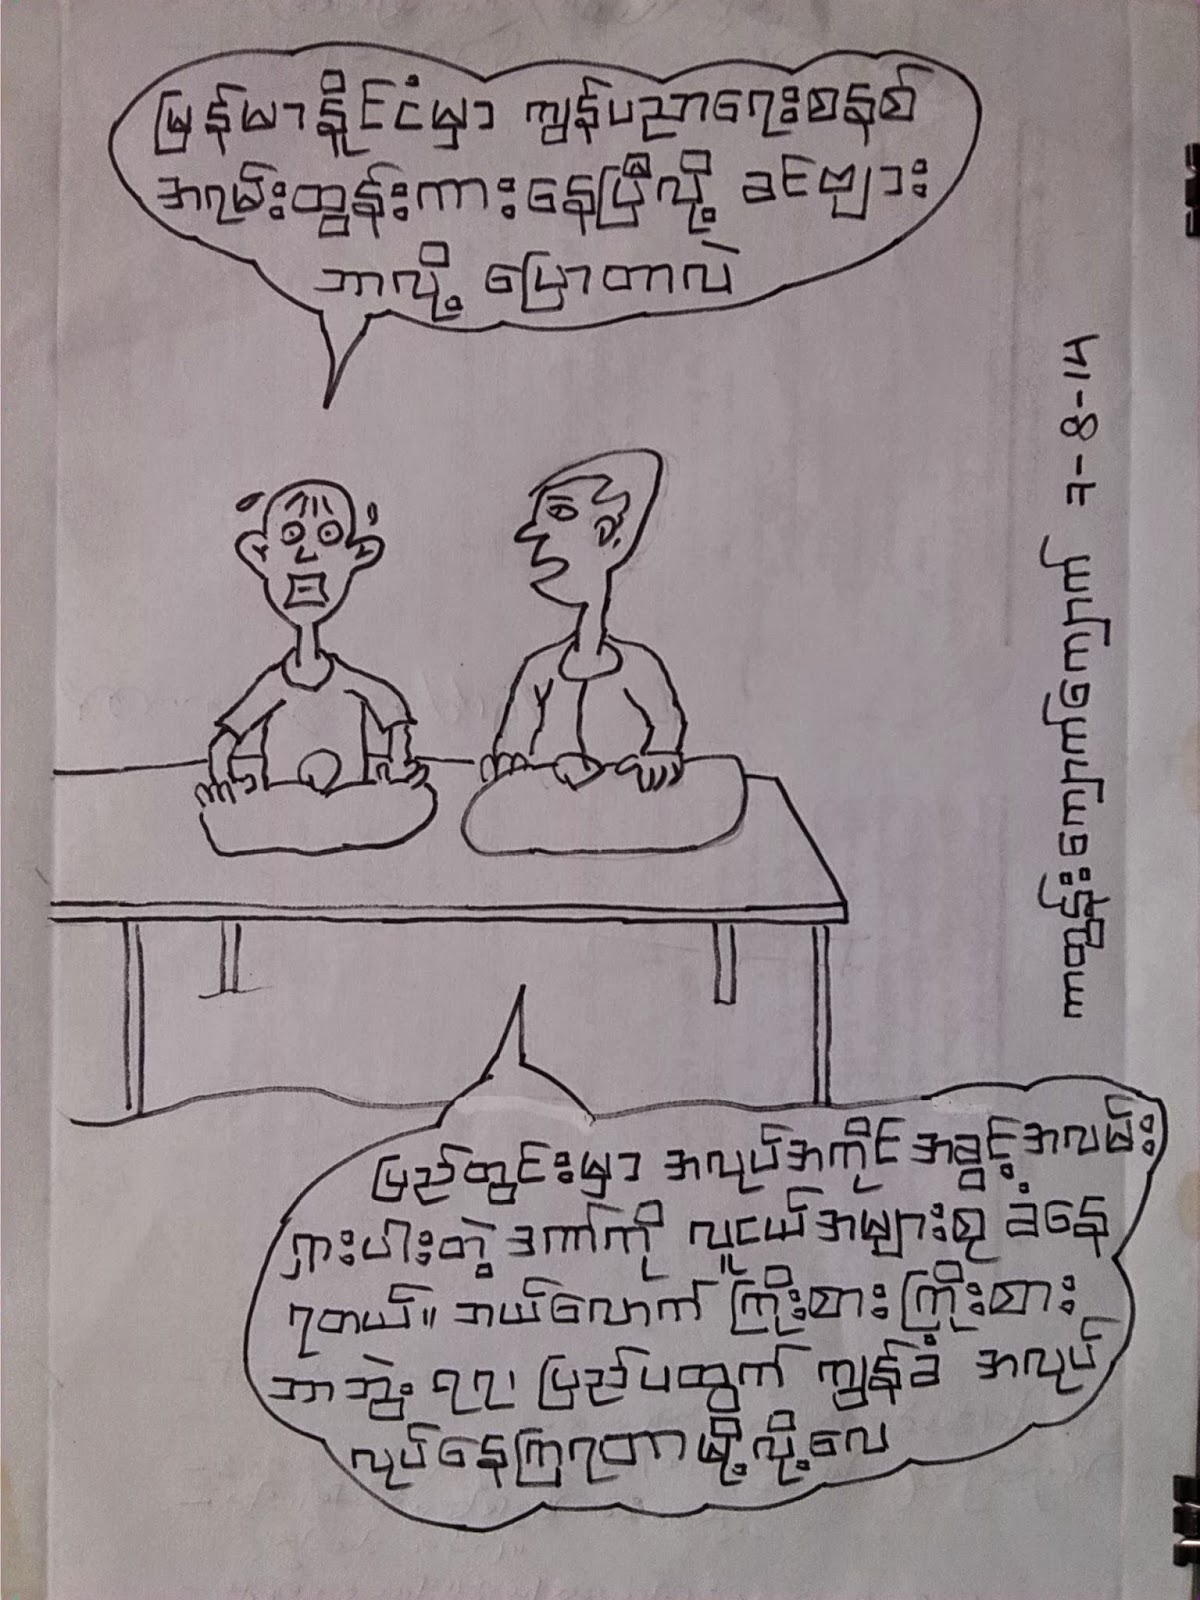 မြန်မာနိုင်ငံမှာ ကျွန်ပညာရေးစနစ်
အရမ်းထွန်းကားနေပြီလို့ ခင်ဗျား
ဘာလို့ ပြောတာလဲ
ကာတွန်းကျောက်ကျောက် ၁-8-၁၄
ပြည်တွင်းမှာ အလုပ်အကိုင်အခွင့်အလမ်း
ရှားပါးတဲ့ဒဏ်ကို လူငယ်အများစု ခံနေ
ရတယ်။ ဘယ်လောက် ကြိုးစားကြိုးစား
ဘာဘွဲ့ ရရ၊ ပြည်ပထွက် ကျွန်ခံ အလုပ်
လုပ်နေကြရတာမို့လို့လေ